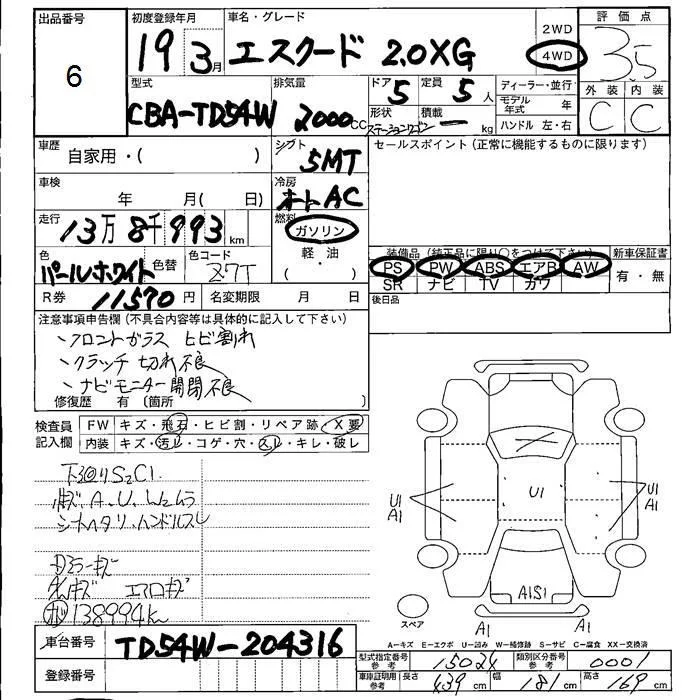 出品番号 初度登録年月 車名・グレード 2WD 評価点
6 19 3月 エスクード 2.0XG 4WD 3.5
型式 排気量 ドア 定員 ディーラー・並行 外装 内装
CBA-TD54W 2000cc 5 5人 モデル年式 年 C C
形状 ステーションワゴン 積載 — kg ハンドル 左・右
車歴 自家用・( ) シフト 5MT セールスポイント(正常に機能するものに限ります)
車検 年 月( 日) 冷房 オートAC
走行 13万8千993km 燃料 ガソリン
軽・油 装備品(純正品に限り○をつけて下さい) 新車保証書
色 パールホワイト 色替 色コード Z7T PS PW ABS エアB AW 有・無
SR ナビ TV カワ
R券 11570円 名変期限 月 日 後日品
注意事項申告欄(不具合内容等は具体的に記入して下さい)
、フロントガラス ヒビ割れ
、クラッチ 切れ不良
、ナビモニター開閉不良
修復歴 有〔箇所 〕
検査員記入欄 FW キズ・飛石・ヒビ割・リペア跡・X要
内装 キズ・汚れ・コゲ・穴・スレ・キレ・破レ
下廻りS2C1
A.U.W2ムラ
シートヘタリ、ハンドルスレ
ミラーキズ
エアロキズ
138994k
U1 A1
U1
U1 A1
A1S1
A1 A1
スペア
A-キズ E-エクボ U-凹み W-補修跡 S-サビ C-腐食 XX-交換済
車台番号 TD54W-204316
型式指定番号 参考 15024 類別区分番号 参考 0001
登録番号
車庫証明用 参考 長さ 439cm 幅 181cm 高さ 169cm